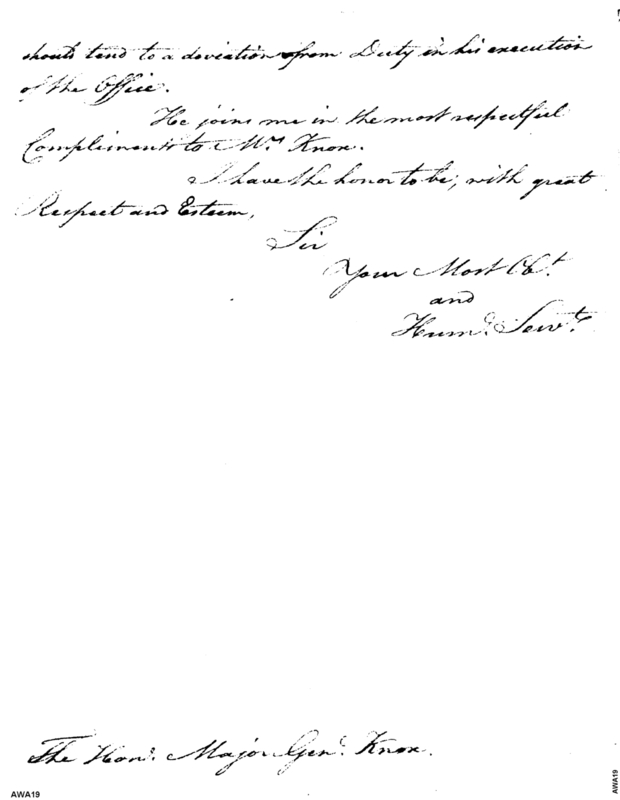 should tend to a deviation from Duty in his execution
of the Office.
He joins me in the most respectful
Compliments to Mrs Knox.
I have the honor to be, with great
Respect and Esteem,
Sir
Your Most Obt.
and
Humle. Servt.
The Honl. Major Genl. Knox.
AWA19
AWA19